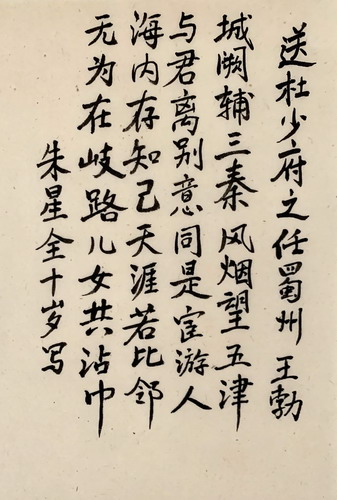 送杜少府之任蜀州 王勃
城阙辅三秦风烟望五津
与君离别意同是宦游人
海内存知己天涯若比邻
无为在歧路儿女共沾巾
朱星全十岁写